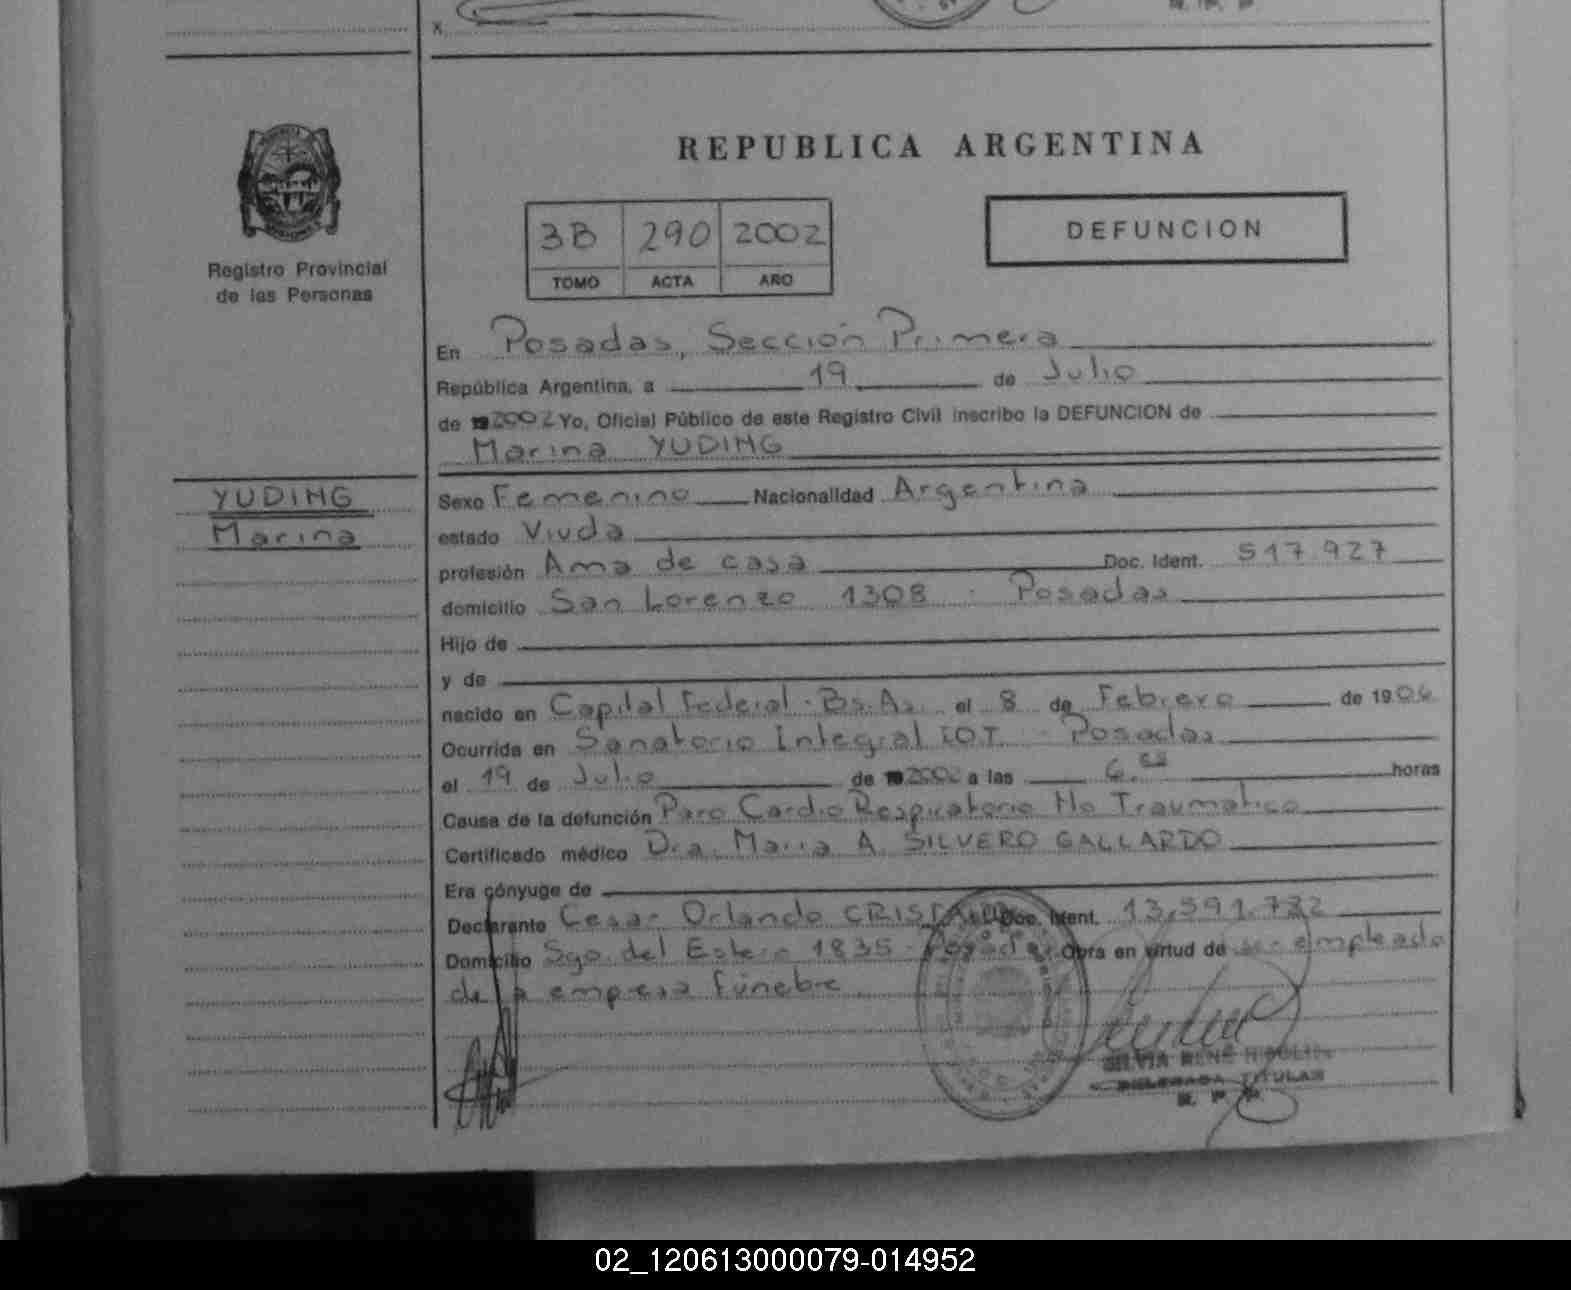 x
REPUBLICA ARGENTINA
3B 290 2002
TOMO ACTA AÑO
DEFUNCION
Registro Provincial
de las Personas
En Posadas, Sección Primera
República Argentina, a 19 de Julio
de 2002 Yo, Oficial Público de este Registro Civil inscribo la DEFUNCION de
Marina YUDING
YUDING
Marina
Sexo Femenino Nacionalidad Argentina
estado Viuda
profesión Ama de casa Doc. Ident. 517.927
domicilio San Lorenzo 1308 - Posadas
Hijo de
y de
nacido en Capital Federal - Bs. As. el 8 de Febrero de 1906
Ocurrida en Sanatorio Integral IOT - Posadas
el 19 de Julio de 2002 a las 6.00 horas
Causa de la defunción Paro Cardio Respiratorio No Traumatico
Certificado médico Dra. Maria A. SILVERO GALLARDO
Era cónyuge de
Declarante Cesar Orlando CRISTALDO Doc. Ident. 13.591.782
Domicilio Sgo. del Estero 1835 - Posadas Obra en virtud de ser empleado
de la empresa fúnebre
SILVIA RENÉ
DELEGADA TITULAR
R. P. P.
02_120613000079-014952